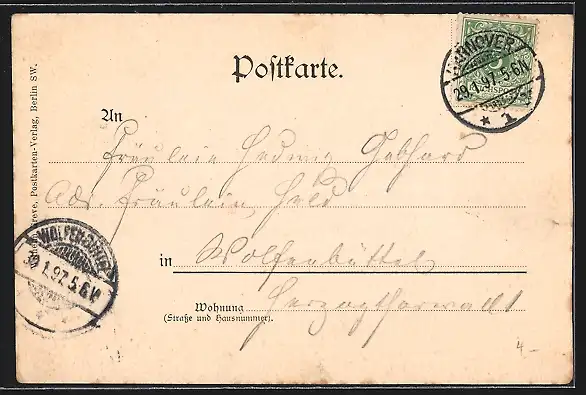 Postkarte.
HANNOVER
29.1.97.5-6N
* 1
An
Fräulein Hedwig Gebhard
Adr. Fräulein Held
in Wolfenbüttel
Wohnung Herzogthorwall 1
(Straße und Hausnummer).
WOLFENBÜTTEL
30.1.97.5-6V
Postkarten-Verlag, Berlin SW.
4 -